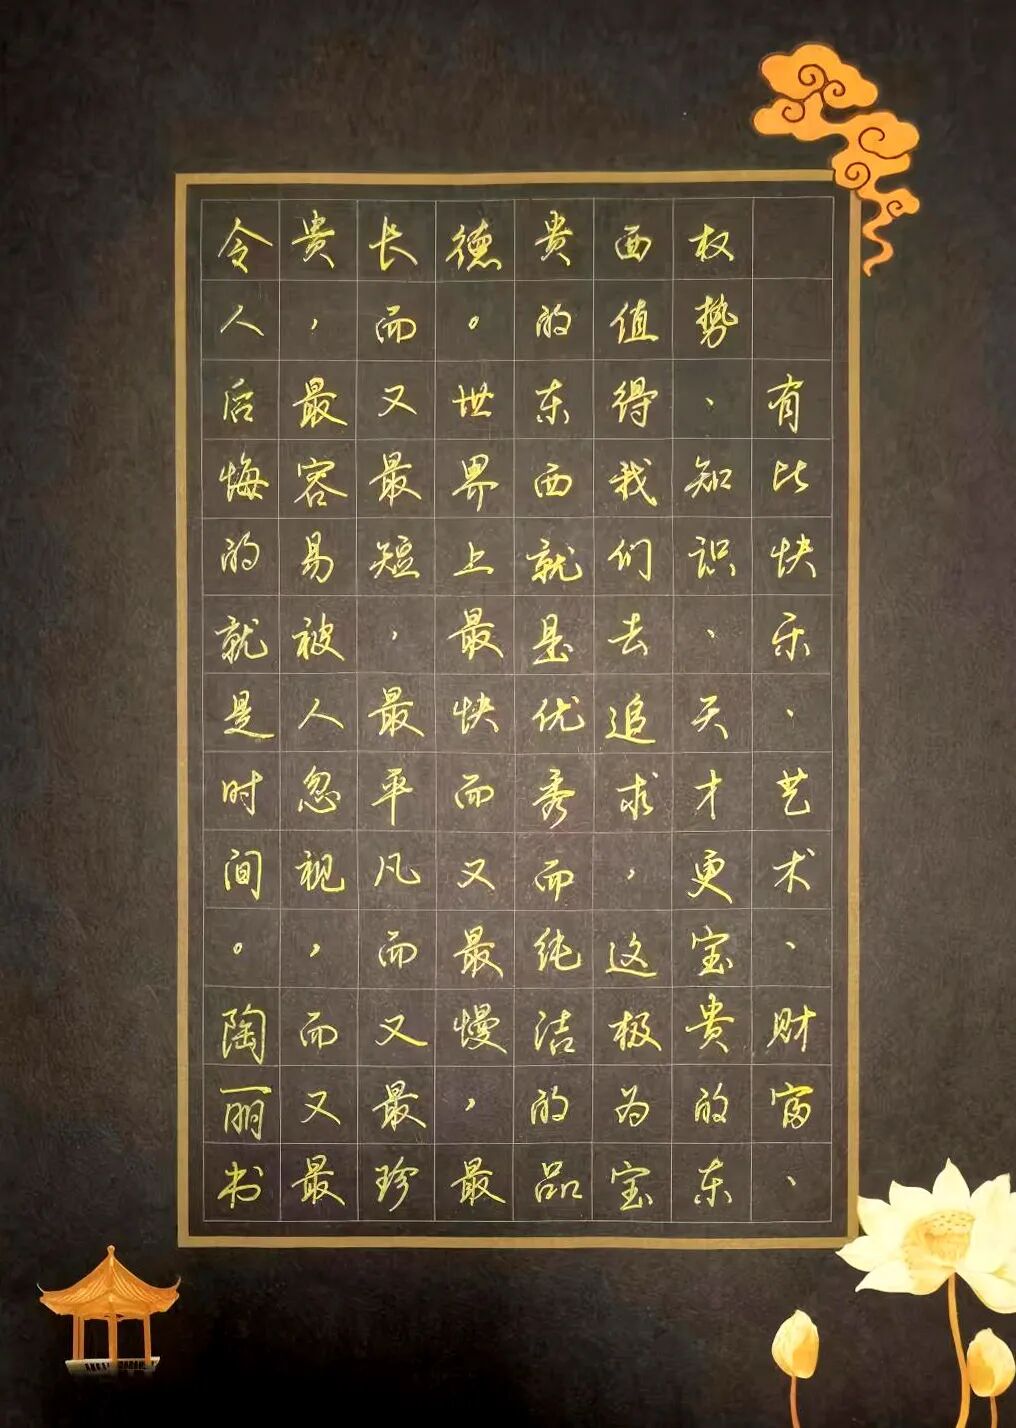 有比快乐、艺术、财富、
权势、知识、天才更宝贵的东
西值得我们去追求，这极为宝
贵的东西就是优秀而纯洁的品
德。世界上最快而又最慢，最
长而又最短，最平凡而又最珍
贵，最容易被人忽视，而又最
令人后悔的就是时间。陶丽书